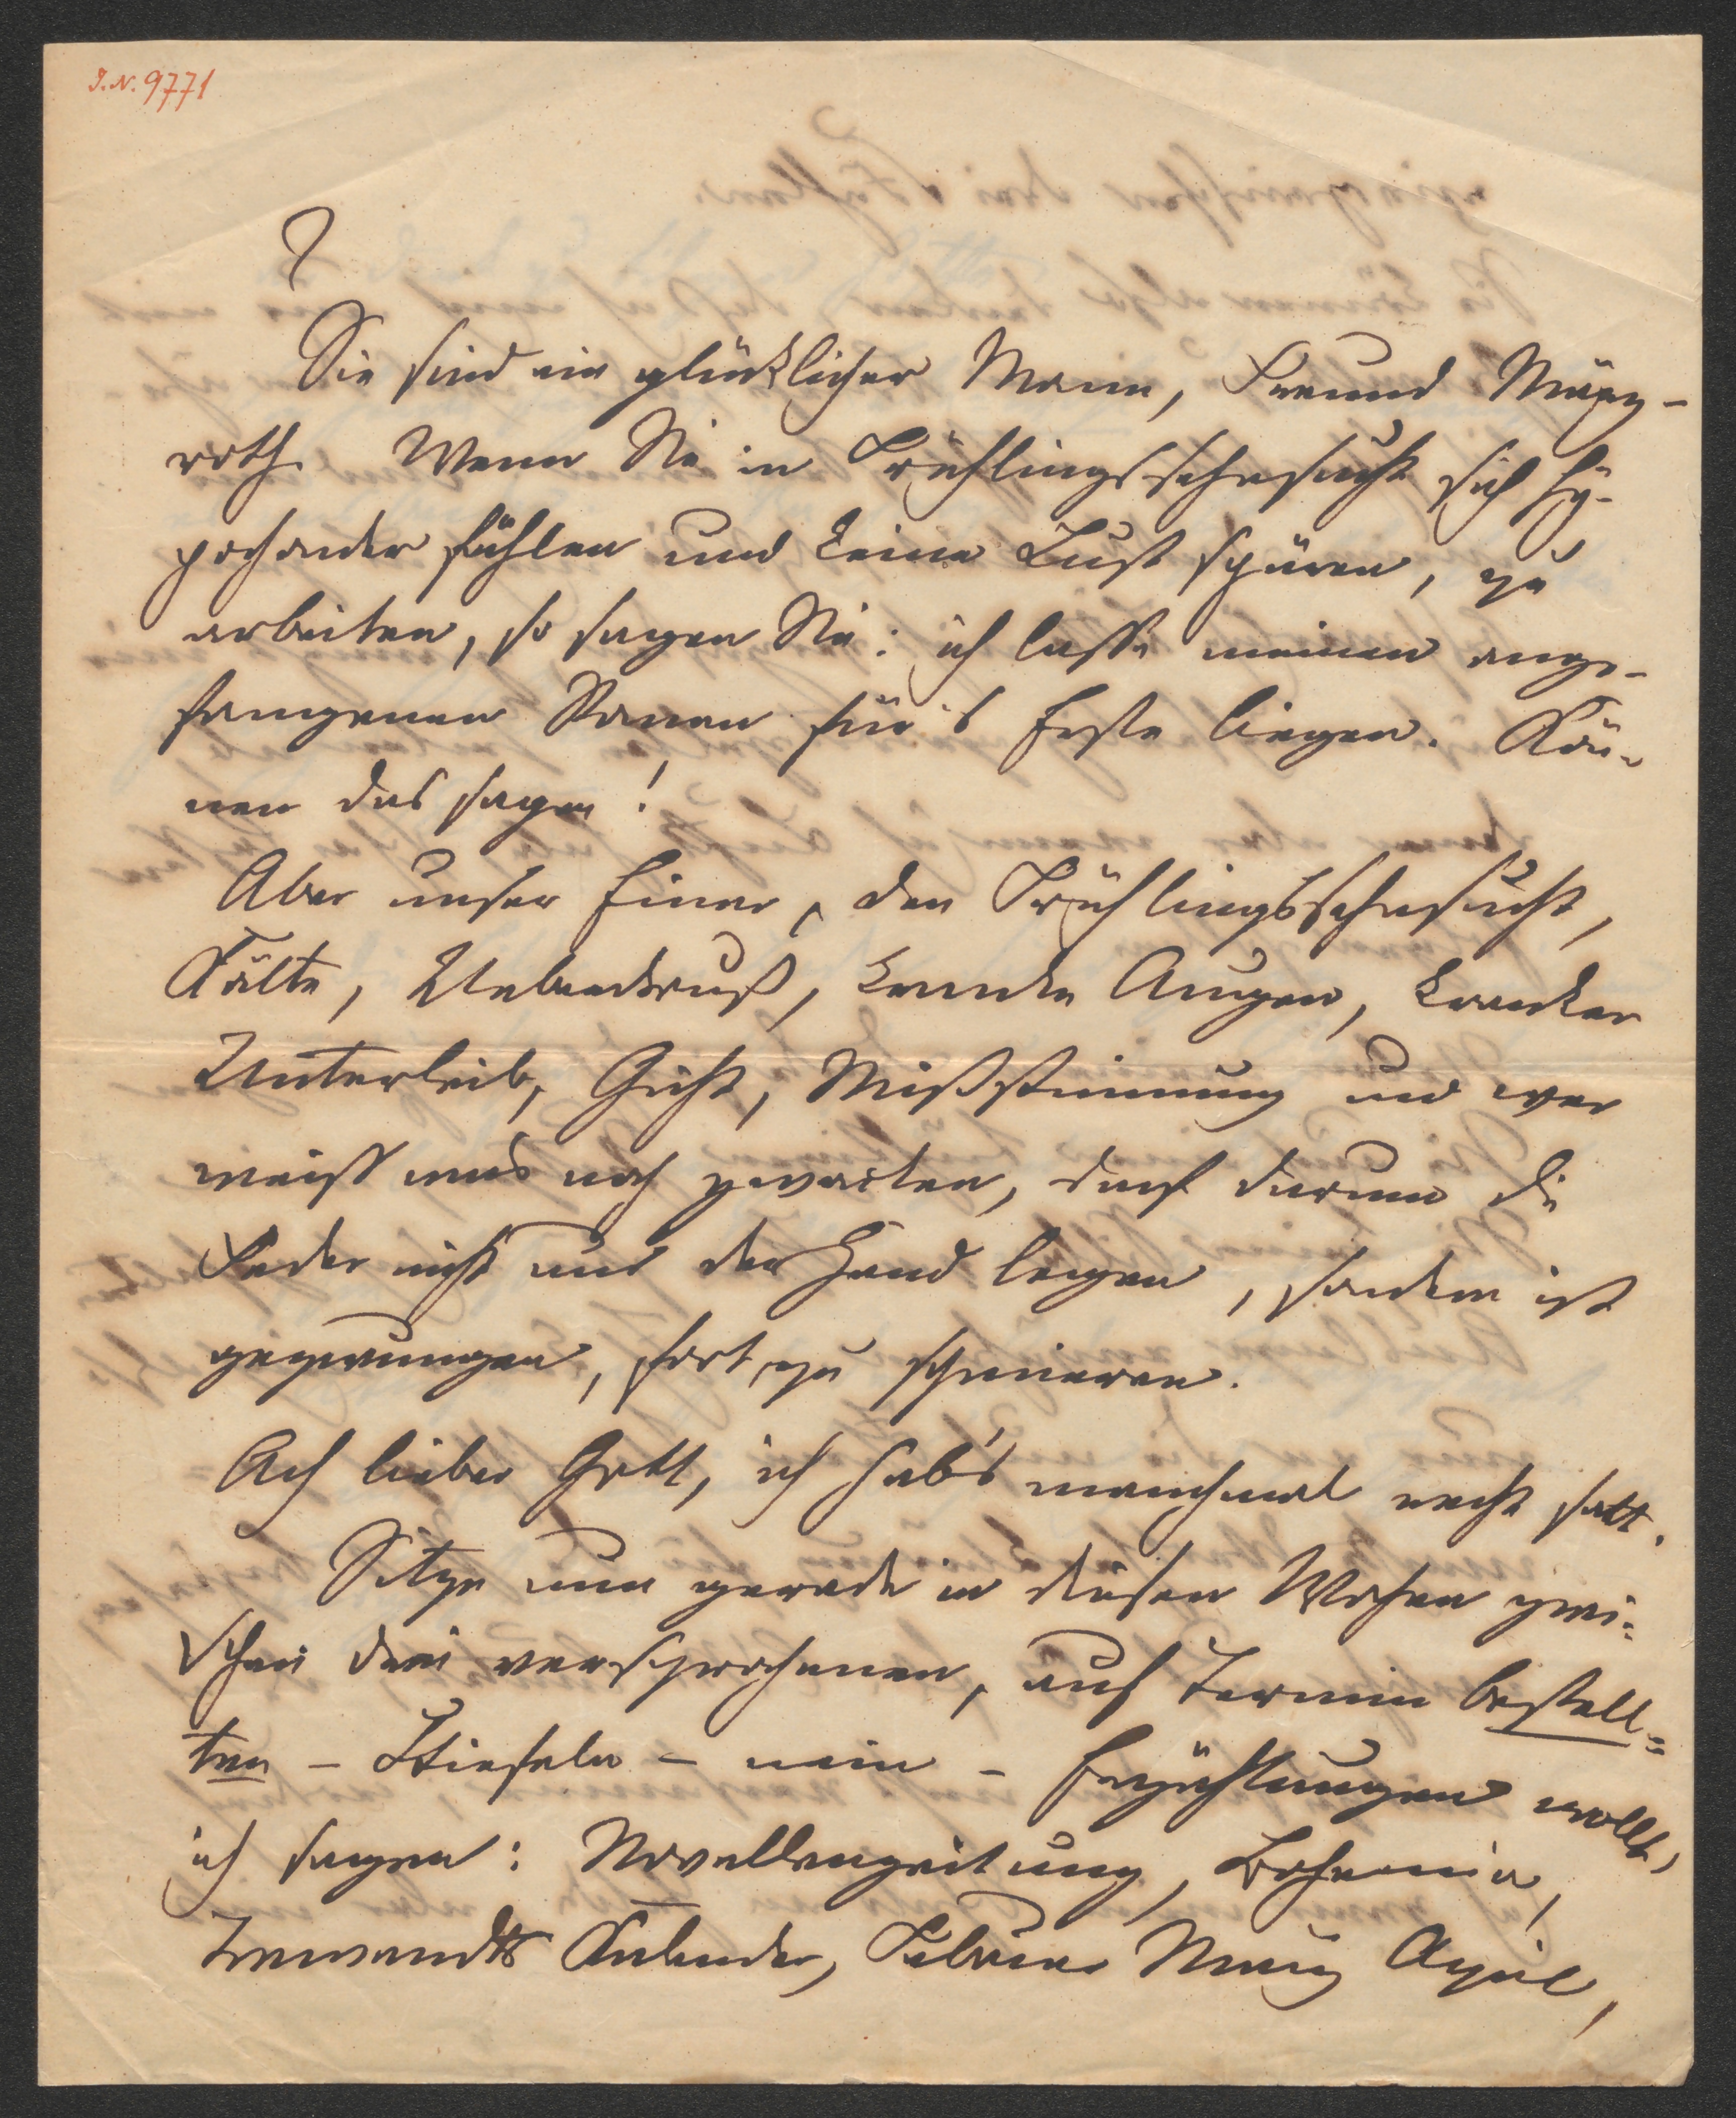 I.N. 9771
Sie sind ein glücklicher Mann, Freund Märzroth
roth. Wenn Sie in Frühlingssehnsucht sich hy-
pochonder fühlen und keine Lust spüren, zu
arbeiten, so sagen Sie: ich lasse meinen ange-
fangenen Roman für's Erste liegen. Kön-
nen das sagen!
Aber unser Einer, den Frühlingssehnsucht,
Kälte, Ueberdruß, kranke Augen, kranker
Unterleib, Gicht, Mißstimmung und wer
weiß was noch , darf darum die
Feder nicht aus der Hand legen, sondern ist
gezwungen, fort zu schmieren.
Ach lieber Gott, ich hab's manchmal recht satt.
Sitze nun gerade in diesen Wochen zwi-
schen drei versprochenen, auf Termin bestell=
ten – Stiefeln – nein – Erzählungen wollt'
ich sagen: Novellenzeitung, Bohemia,
Trewendts Kalender, Februar März April,